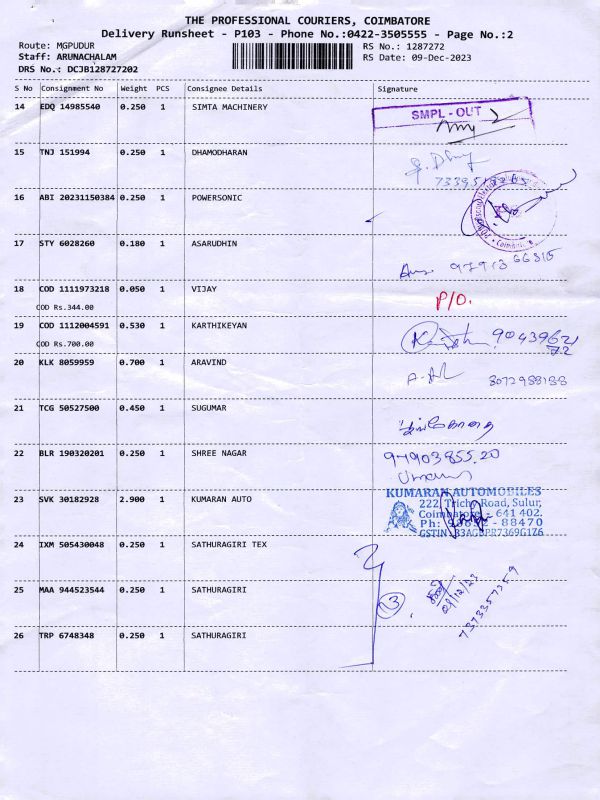 THE PROFESSIONAL COURIERS, COIMBATORE
Delivery Runsheet - P103 - Phone No.:0422-3505555 - Page No.:2
Route: MGPUDUR
RS No.: 1287272
Staff: ARUNACHALAM
RS Date: 09-Dec-2023
DRS No.: DCJB128727202
S No Consignment No Weight PCS Consignee Details Signature
14 EDQ 14985540 0.250 1 SIMTA MACHINERY
SMPL - OUT
15 TNJ 151994 0.250 1 DHAMODHARAN
16 ABI 20231150384 0.250 1 POWERSONIC
17 STY 6028260 0.180 1 ASARUDHIN
97913 66315
18 COD 1111973218 0.050 1 VIJAY
P/O.
COD Rs.344.00
19 COD 1112004591 0.530 1 KARTHIKEYAN
90439621
72
COD Rs.700.00
20 KLK 8059959 0.700 1 ARAVIND
21 TCG 50527500 0.450 1 SUGUMAR
22 BLR 190320201 0.250 1 SHREE NAGAR
97903855.20
23 SVK 30182928 2.900 1 KUMARAN AUTO
KUMARAN AUTOMOBILES
222, Trichy Road, Sulur,
Coimbatore - 641 402.
24 IXM 505430048 0.250 1 SATHURAGIRI TEX
25 MAA 944523544 0.250 1 SATHURAGIRI
3
09/12/23
7373357359
26 TRP 6748348 0.250 1 SATHURAGIRI